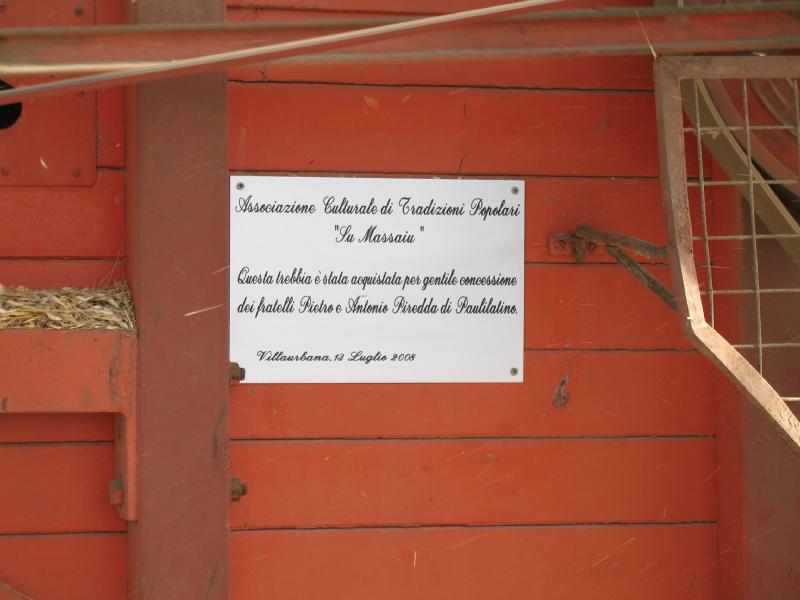 Associazione Culturale di Tradizioni Popolari
"Su Massaiu"
Questa trebbia è stata acquistata per gentile concessione
dei fratelli Pietro e Antonio Piredda di Paulilatino.
Villaurbana, 13 Luglio 2008